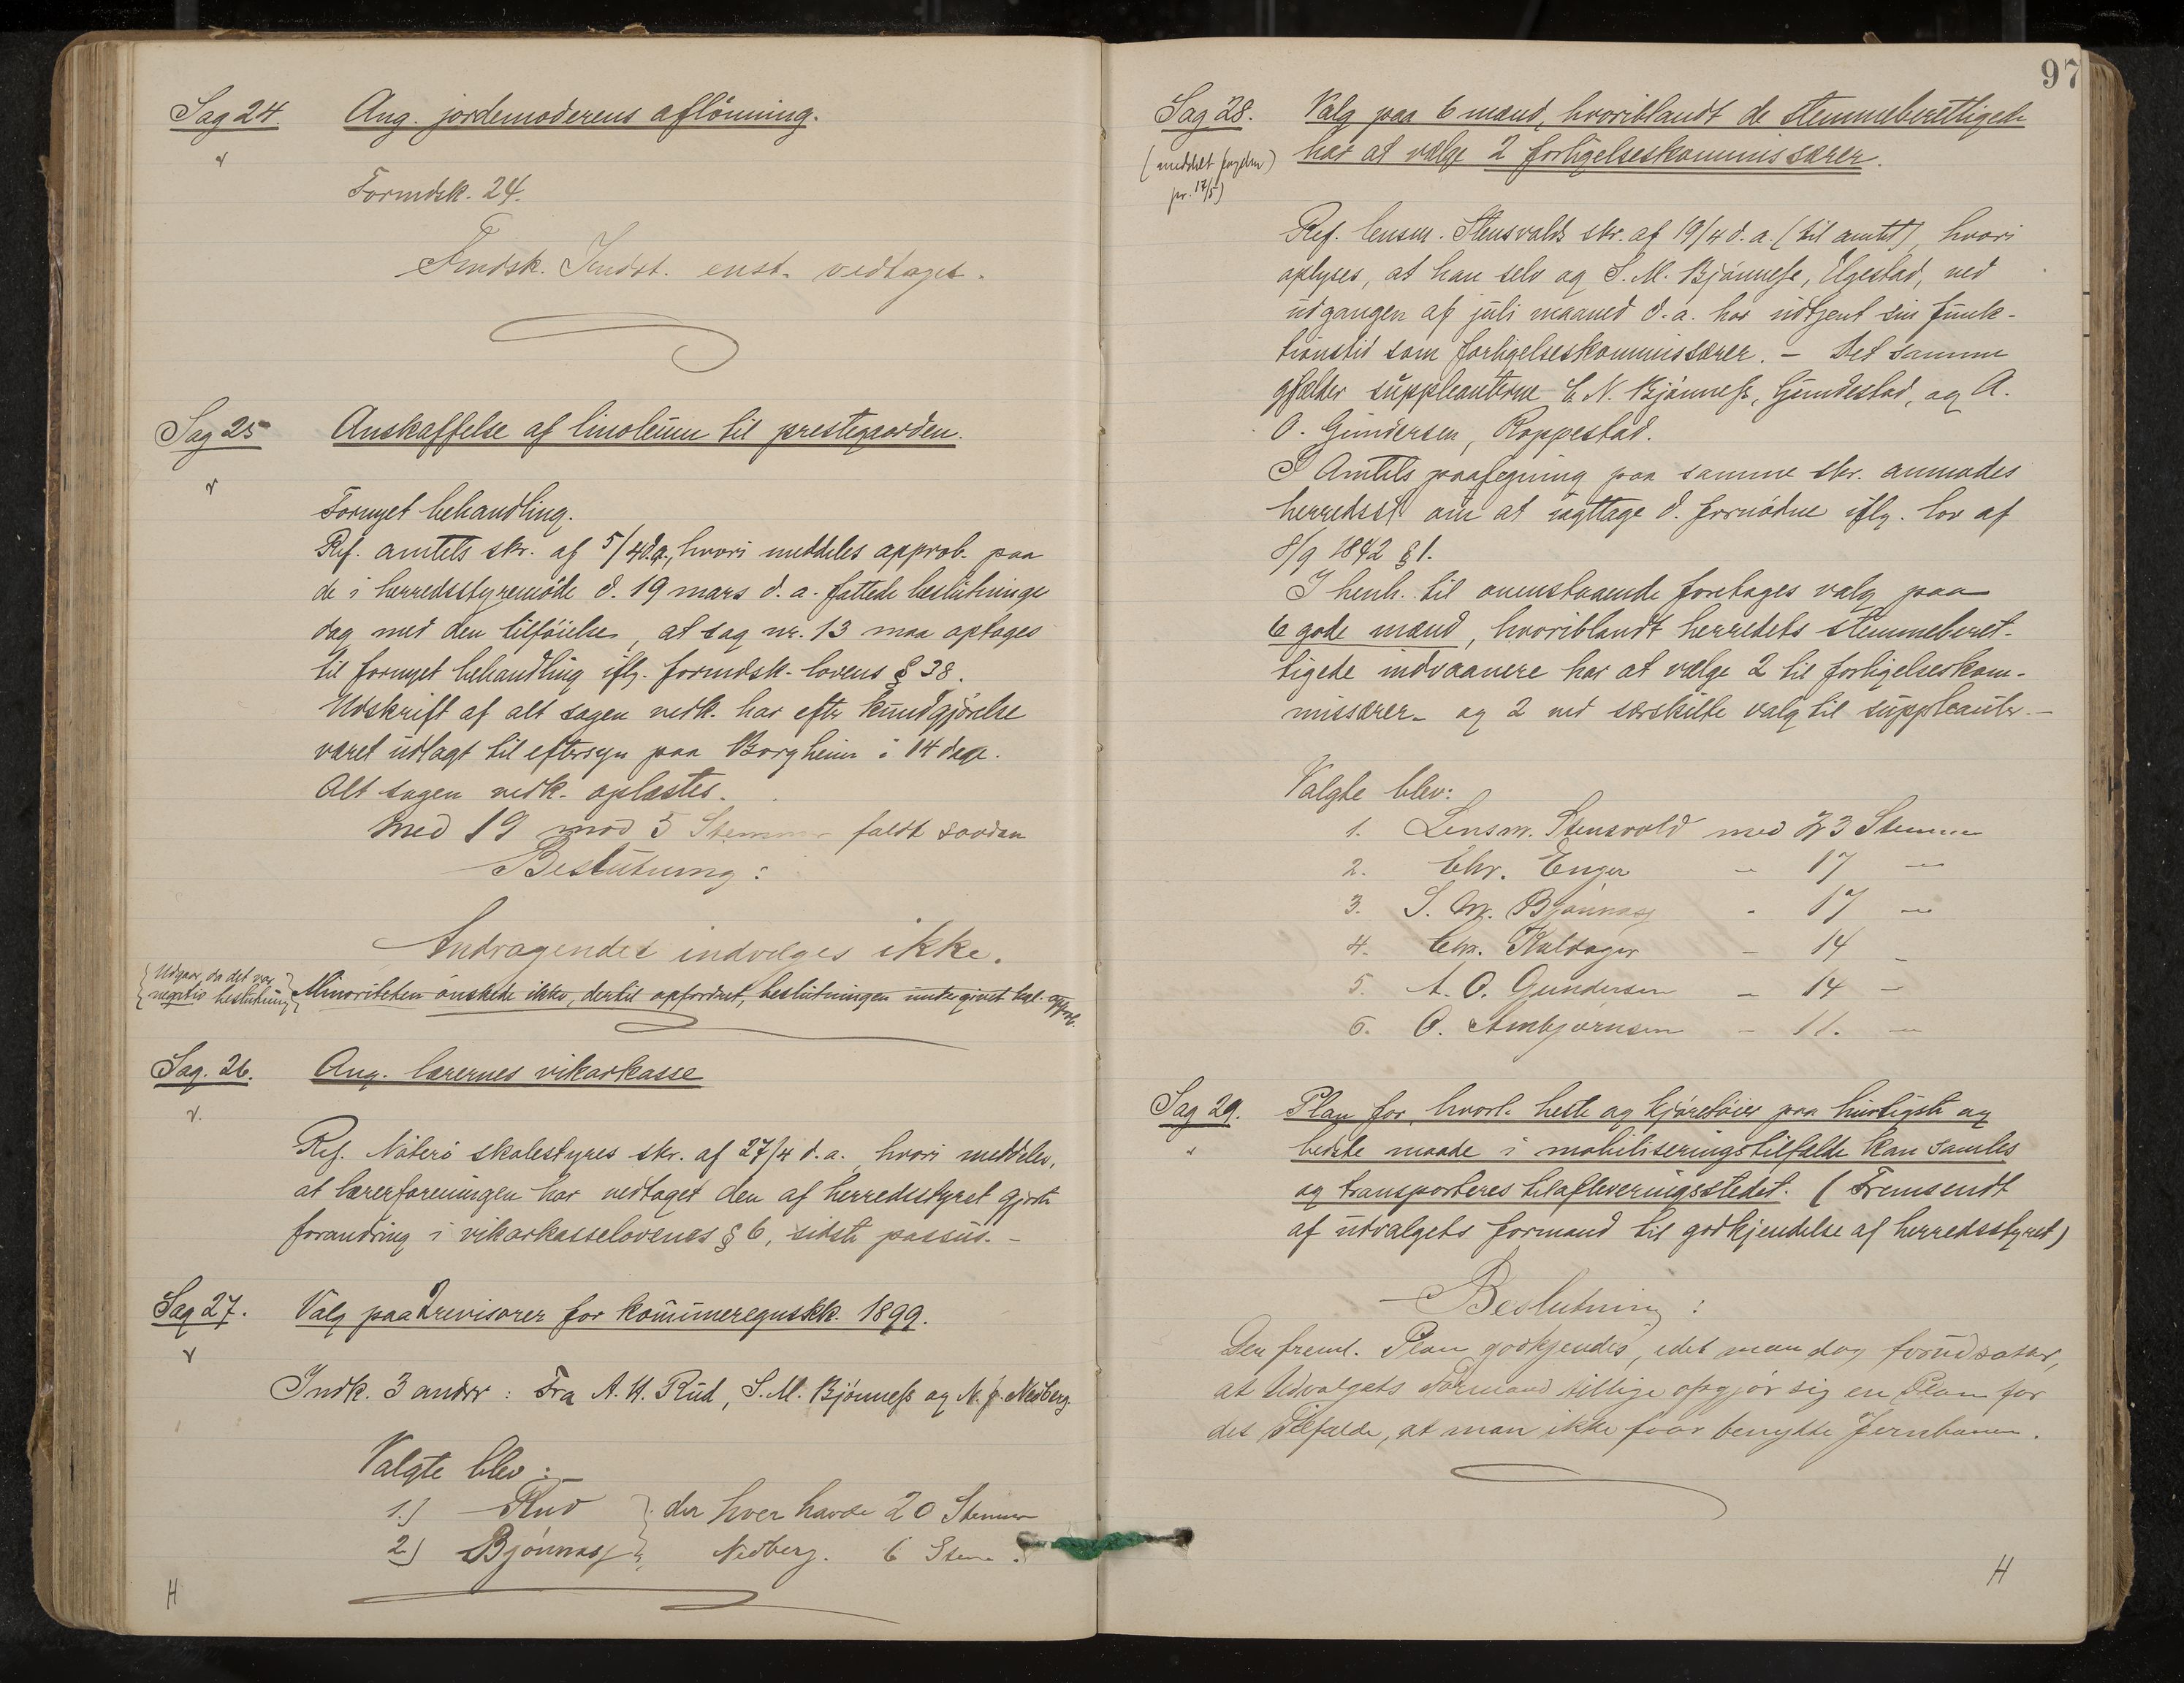 Sag 24. Ang. jordemoderens aflönning.
Formdsk. 24.
Fmdsk. Indst. enst. vedtaget.
Sag 25 Anskaffelse af linoleum til prestegaarden.
Fornyet behandling.
Ref. amtets skr. af 5/4 d.a., hvori meddeles approb. paa
de i herredsstyremöde d. 19 mars d. a. fattede beslutninge
dog med den tilföielse, at sag nr. 13 maa optages
til fornyet behandling iflg. formdsk-lovens § 38.
Udskrift af alt sagen vedk. har efter kundgjörelse
været udlagt til eftersyn paa Borgheim i 14 dage.
Alt sagen vedk. oplæstes.
Med 19 mod 5 Stemmer faldt saadan
Beslutning:
Andragendet indvilges ikke.
{Udgaar, da det var
negativ beslutning}
Minoriteten önskede ikke, dertil opfordret, beslutningen undergivet kgl. approb.
Sag. 26. Ang. lærernes vikarkasse
Ref. Nöterö skolestyres skr. af 27/4 d.a., hvori meddeles,
at lærerforeningen har vedtaget den af herredsstyret gjorte
forandring i vikarkasselovenes § 6, sidste passus. –
Sag 27. Valg paa 2 revisorer for kommuneregnskk. 1899.
Indk. 3 andrr: Fra A. H. Rud, S. M. Bjönness og N. J. Nedberg.
Valgte blev:
1.) Rud } der hver havde 20 Stemmer
2) Bjönness } Nedberg. 6 Stem.
H
97
Sag 28. Valg paa 6 mænd, hvoriblandt de stemmeberettigede
har at vælge 2 forligelseskommissærer.
(meddelt fogden)
pr. 17/5)
Ref. lensm. Stensvolds skr. af 19/4 d.a. (til amtet), hvori
oplyses, at han selv og S. M. Bjönness, Elgestad, ved
udgangen af juli maaned d. a. har udtjent sin funk-
tionstid som forligelseskommissærer. – Det samme
gjælder suppleanterne E. N. Bjönness, Gundestad, og A.
O. Gundersen, Roppestad.
I Amtets paategning paa samme skr. anmodes
herredsst. om at iagttage d. fornödne iflg. lov af
8/9 1842 § 1.
I henh. til ovenstaaende foretages valg paa
6 gode mænd, hvoriblandt herredets stemmeberet-
tigede indvaanere har at vælge 2 til forligelseskom-
missærer – og 2 ved særskilte valg til suppleanter. –
Valgte blev:
1. Lensm. Stensvold med 23 Stemme
2. Chr. Enger – 17 –
3. S. M. Bjönness – 17 –
4. Chr. Kaldager – 14 –
5. A. O. Gundersen – 14 –
6. O. Ambjørnsen – 11. –
Sag 29. Plan for, hvorl. heste og kjöretöier paa hurtigste og
bedste maade i mobiliseringstilfælde kan samles
og transporteres til afleveringsstedet. (Fremsendt
af udvalgets formand til godkjendelse af herredsstyret)
Beslutning:
Den freml. Plan godkjendes, idet man dog forudsætter,
at Udvalgets Formand tillige opgjör sig en Plan for
det Tilfælde, at man ikke faar benytte Jernbanen.
H